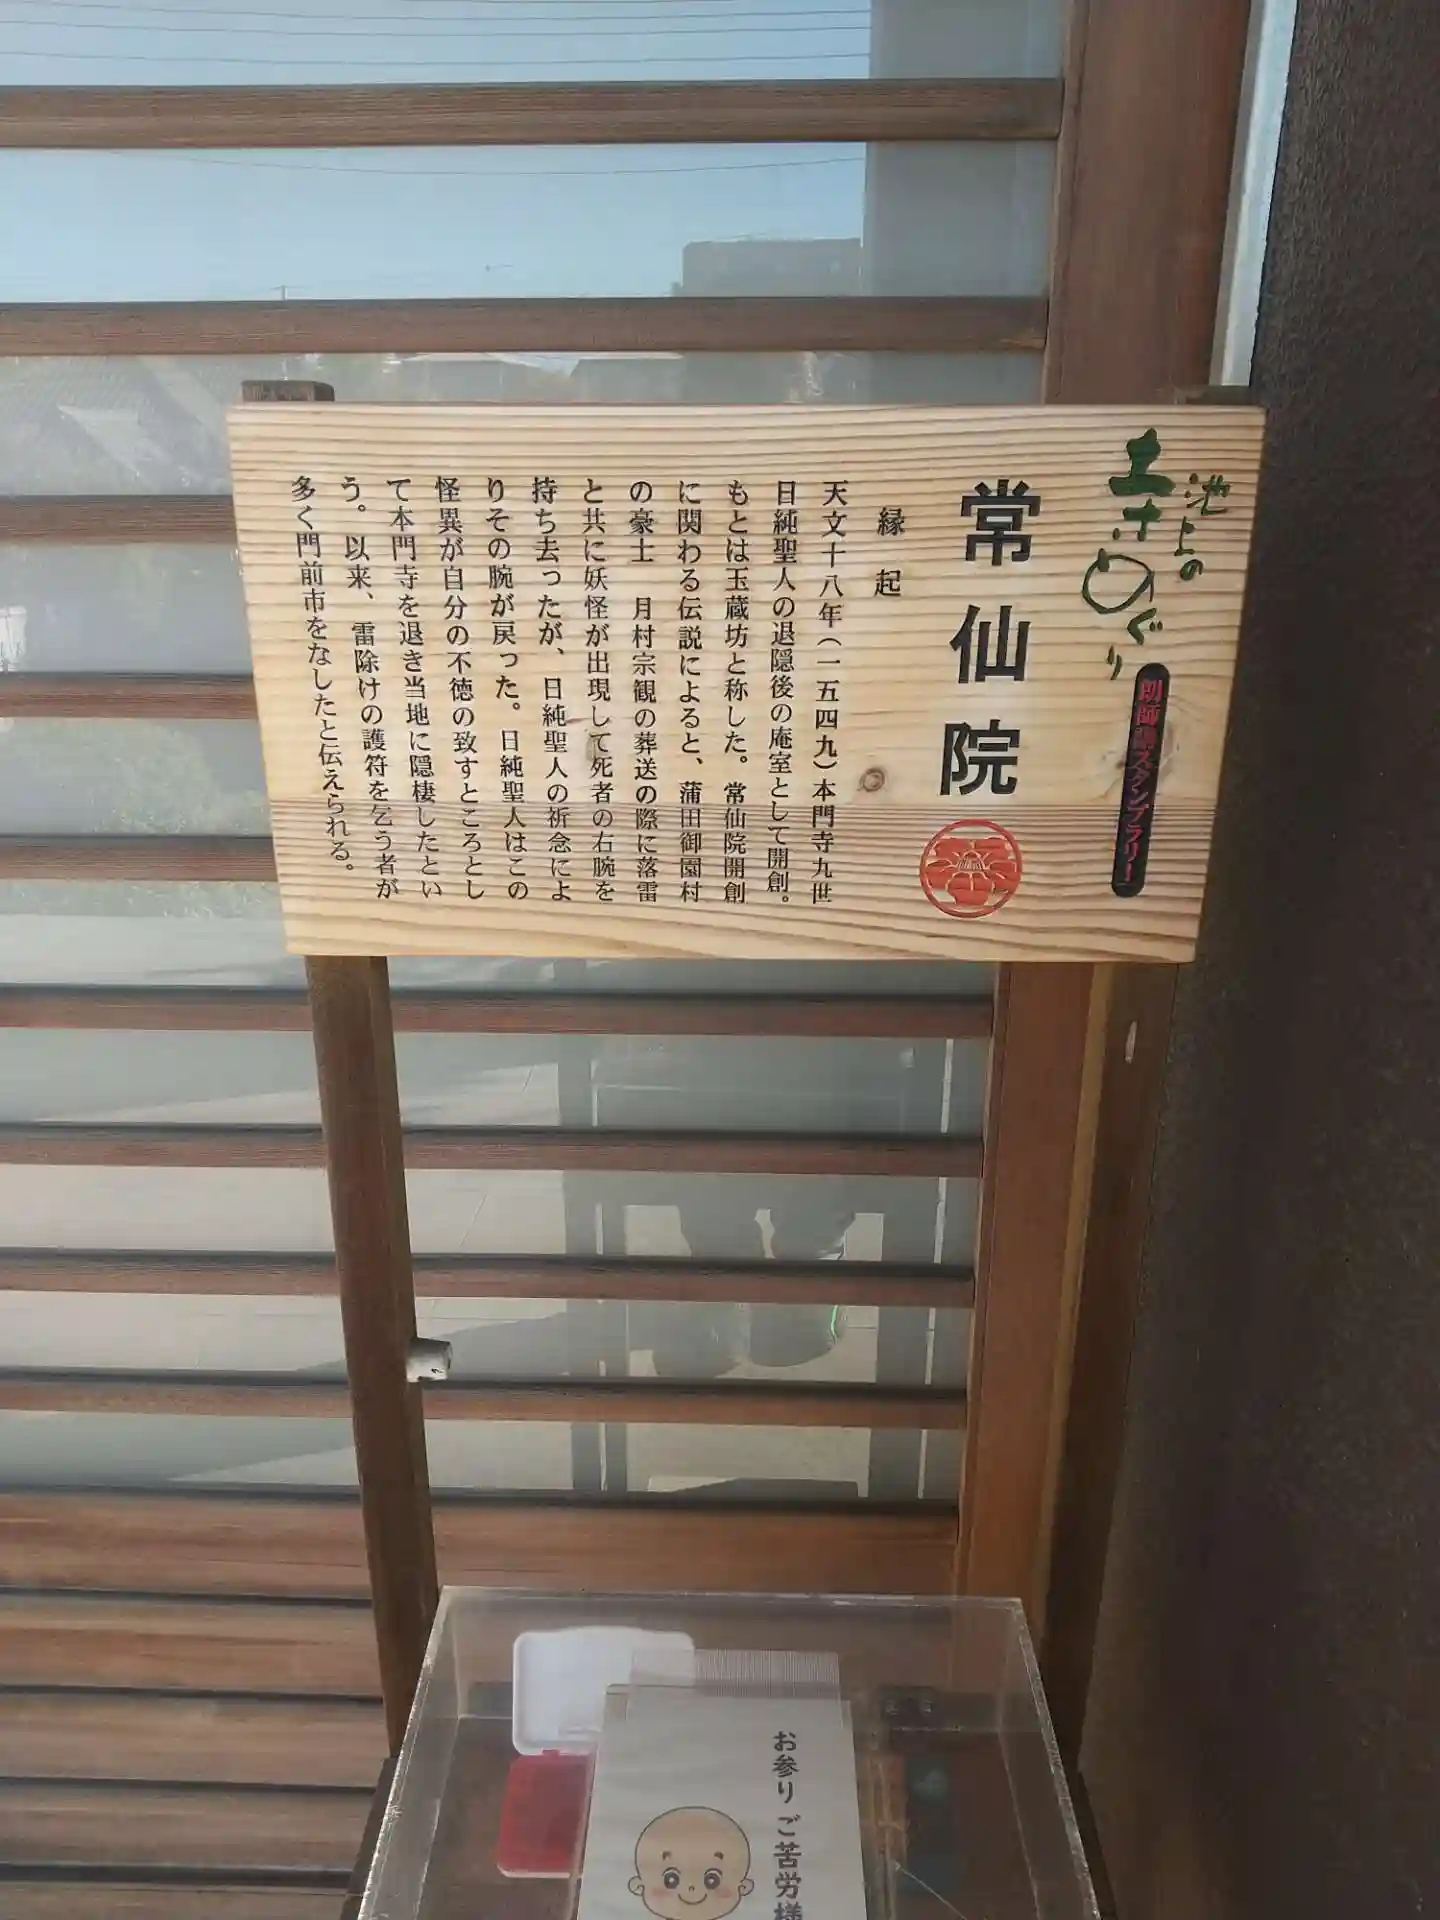 池上の
朗師講スタンプラリー
常仙院
縁起
天文十八年(一五四九)本門寺九世
日純聖人の退隠後の庵室として開創。
もとは玉蔵坊と称した。常仙院開創
に関わる伝説によると、蒲田御園村
の豪士 月村宗観の葬送の際に落雷
と共に妖怪が出現して死者の右腕を
持ち去ったが、日純聖人の祈念によ
りその腕が戻った。日純聖人はこの
怪異が自分の不徳の致すところとし
て本門寺を退き当地に隠棲したとい
う。以来、雷除けの護符を乞う者が
多く門前市をなしたと伝えられる。
お参りご苦労様